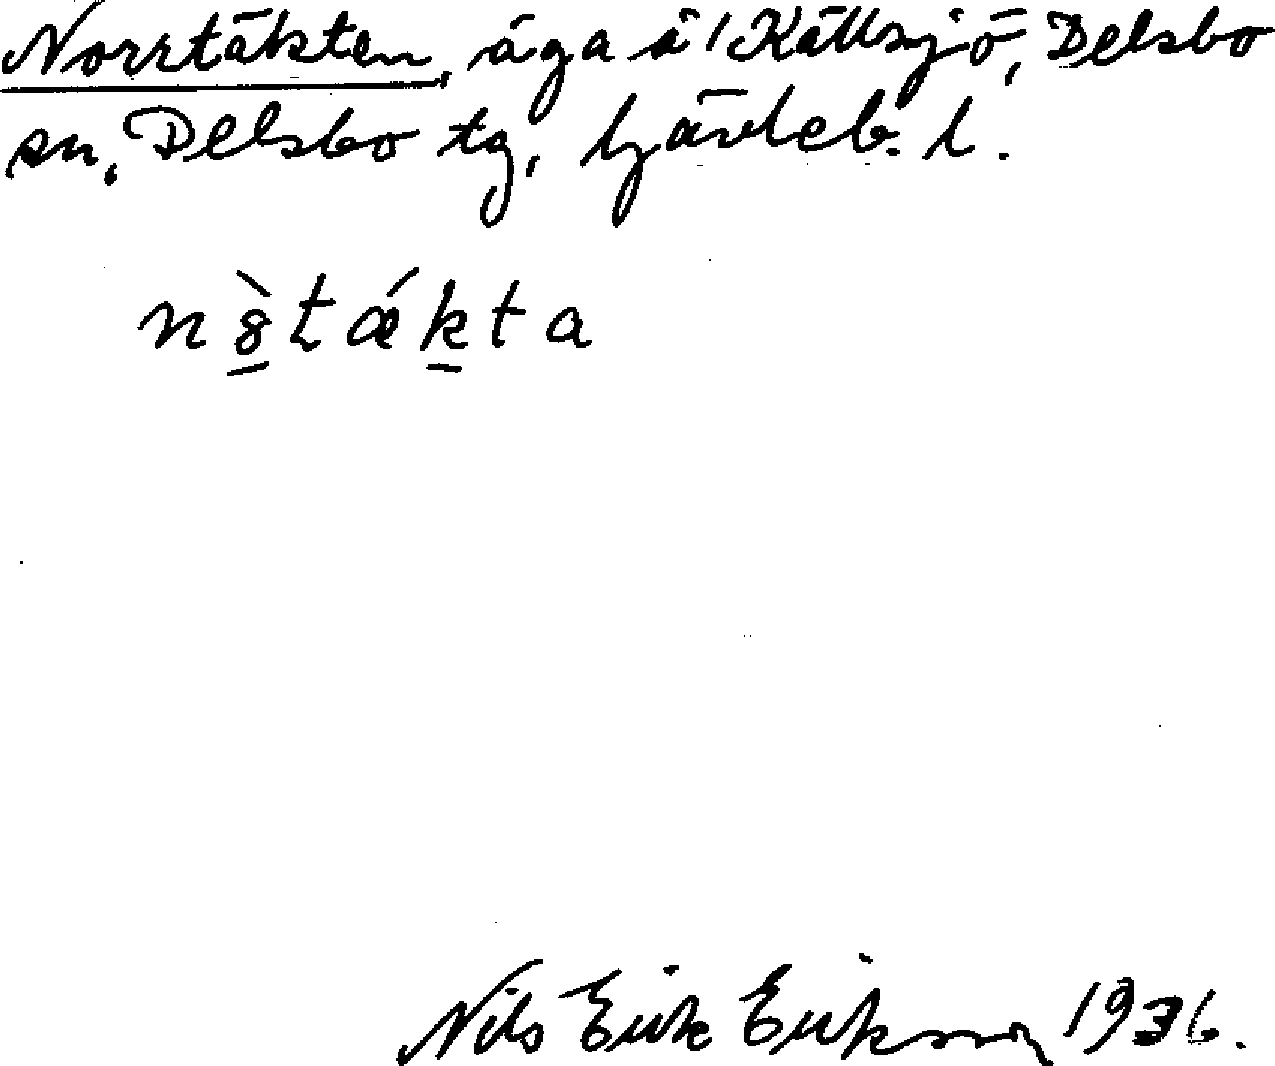 Norrtäkten, äga å 1 Källsjö, Delsbo
sn, Delsbo tg, Gävleb. l.
n8̀tǽkta
Nils Erik Eriksson 1936.